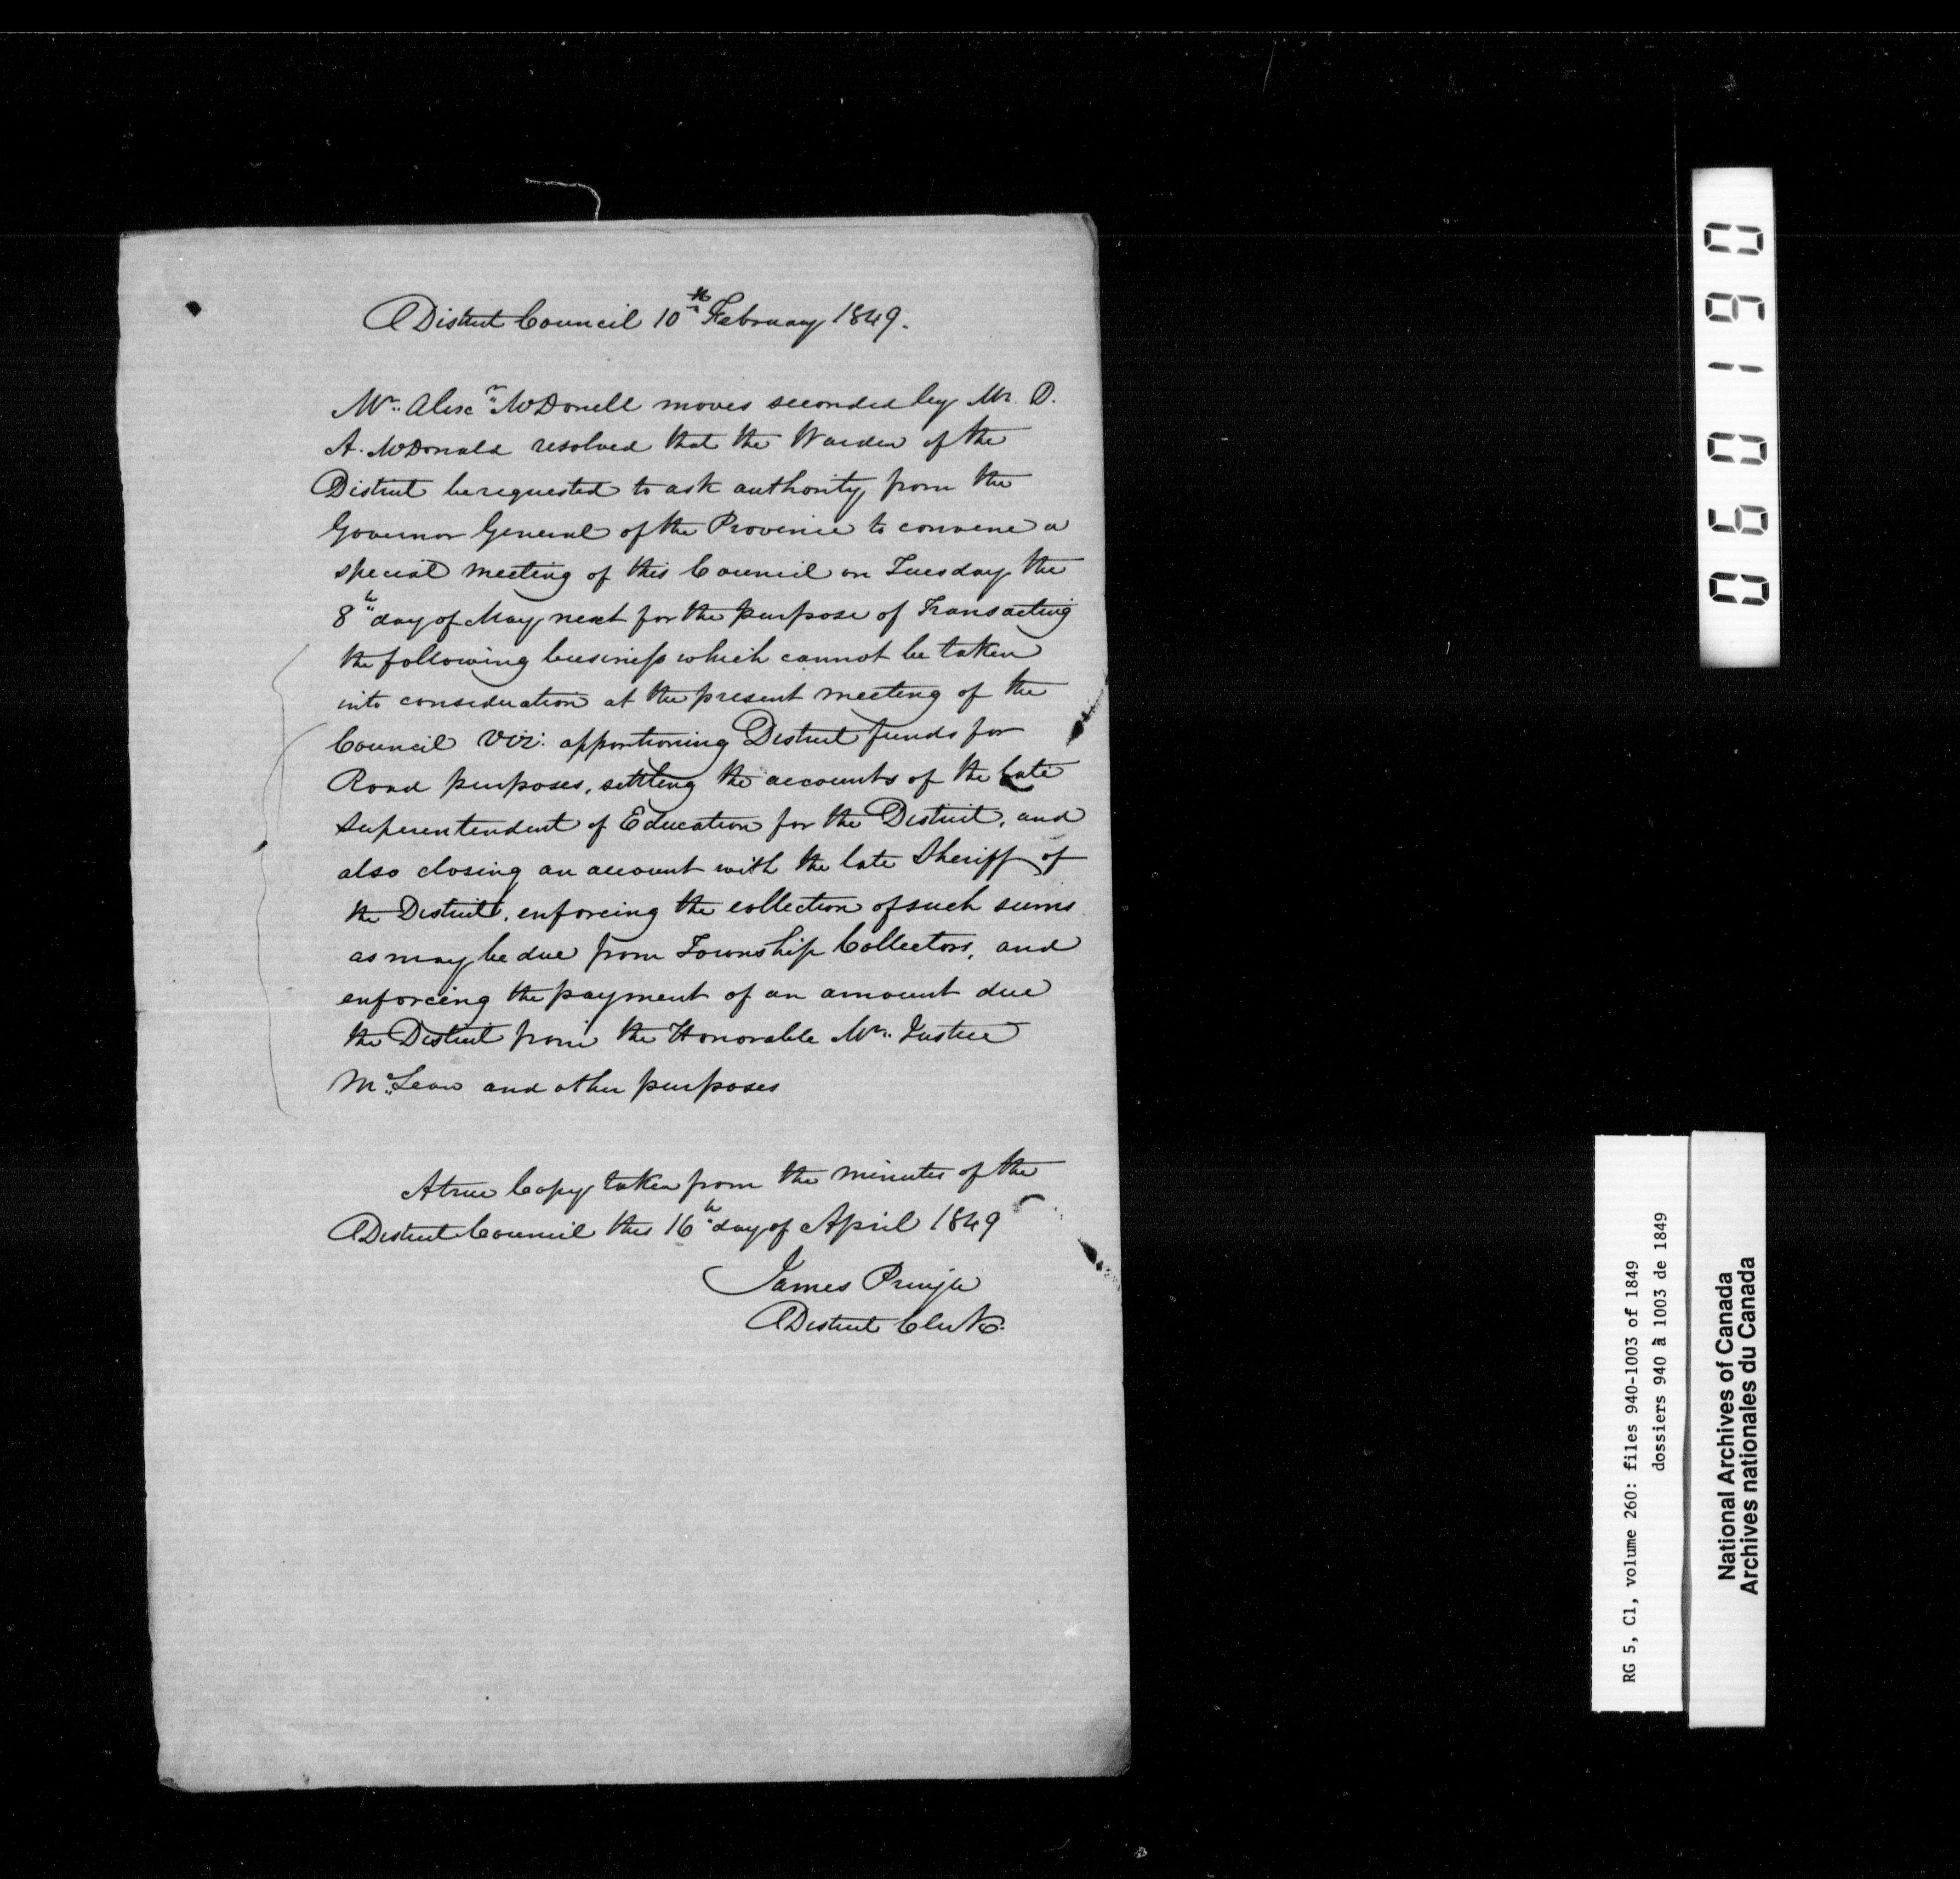 District Council 10th February 1849.
Mr. Alexr. McDonell moves seconded by Mr D.
A. McDonald resolved that the Warden of the
District be requested to ask authority from the
Governor General of the Province to convene a
special meeting of this Council on Tuesday the
8th day of May next for the purpose of Transacting
the following business which cannot be taken
into consideration at the present meeting of the
Council Viz: apportioning District funds for
Road purposes, settling the accounts of the late
Superentendent of Education for the District, and
also closing an account with the late Sheriff of
the District, enforcing the collection of such sums
as may be due from Township Collectors, and
enforcing the payment of an amount due
the District from the Honorable Mr. Justice
McLean and other purposes
A true Copy taken from the minutes of the
District Council this 16th day of April 1849
James Pringle
District Clerk.
060190
RG 5, C1, volume 260: files 940-1003 of 1849
dossiers 940 à 1003 de 1849
National Archives of Canada
Archives nationales du Canada